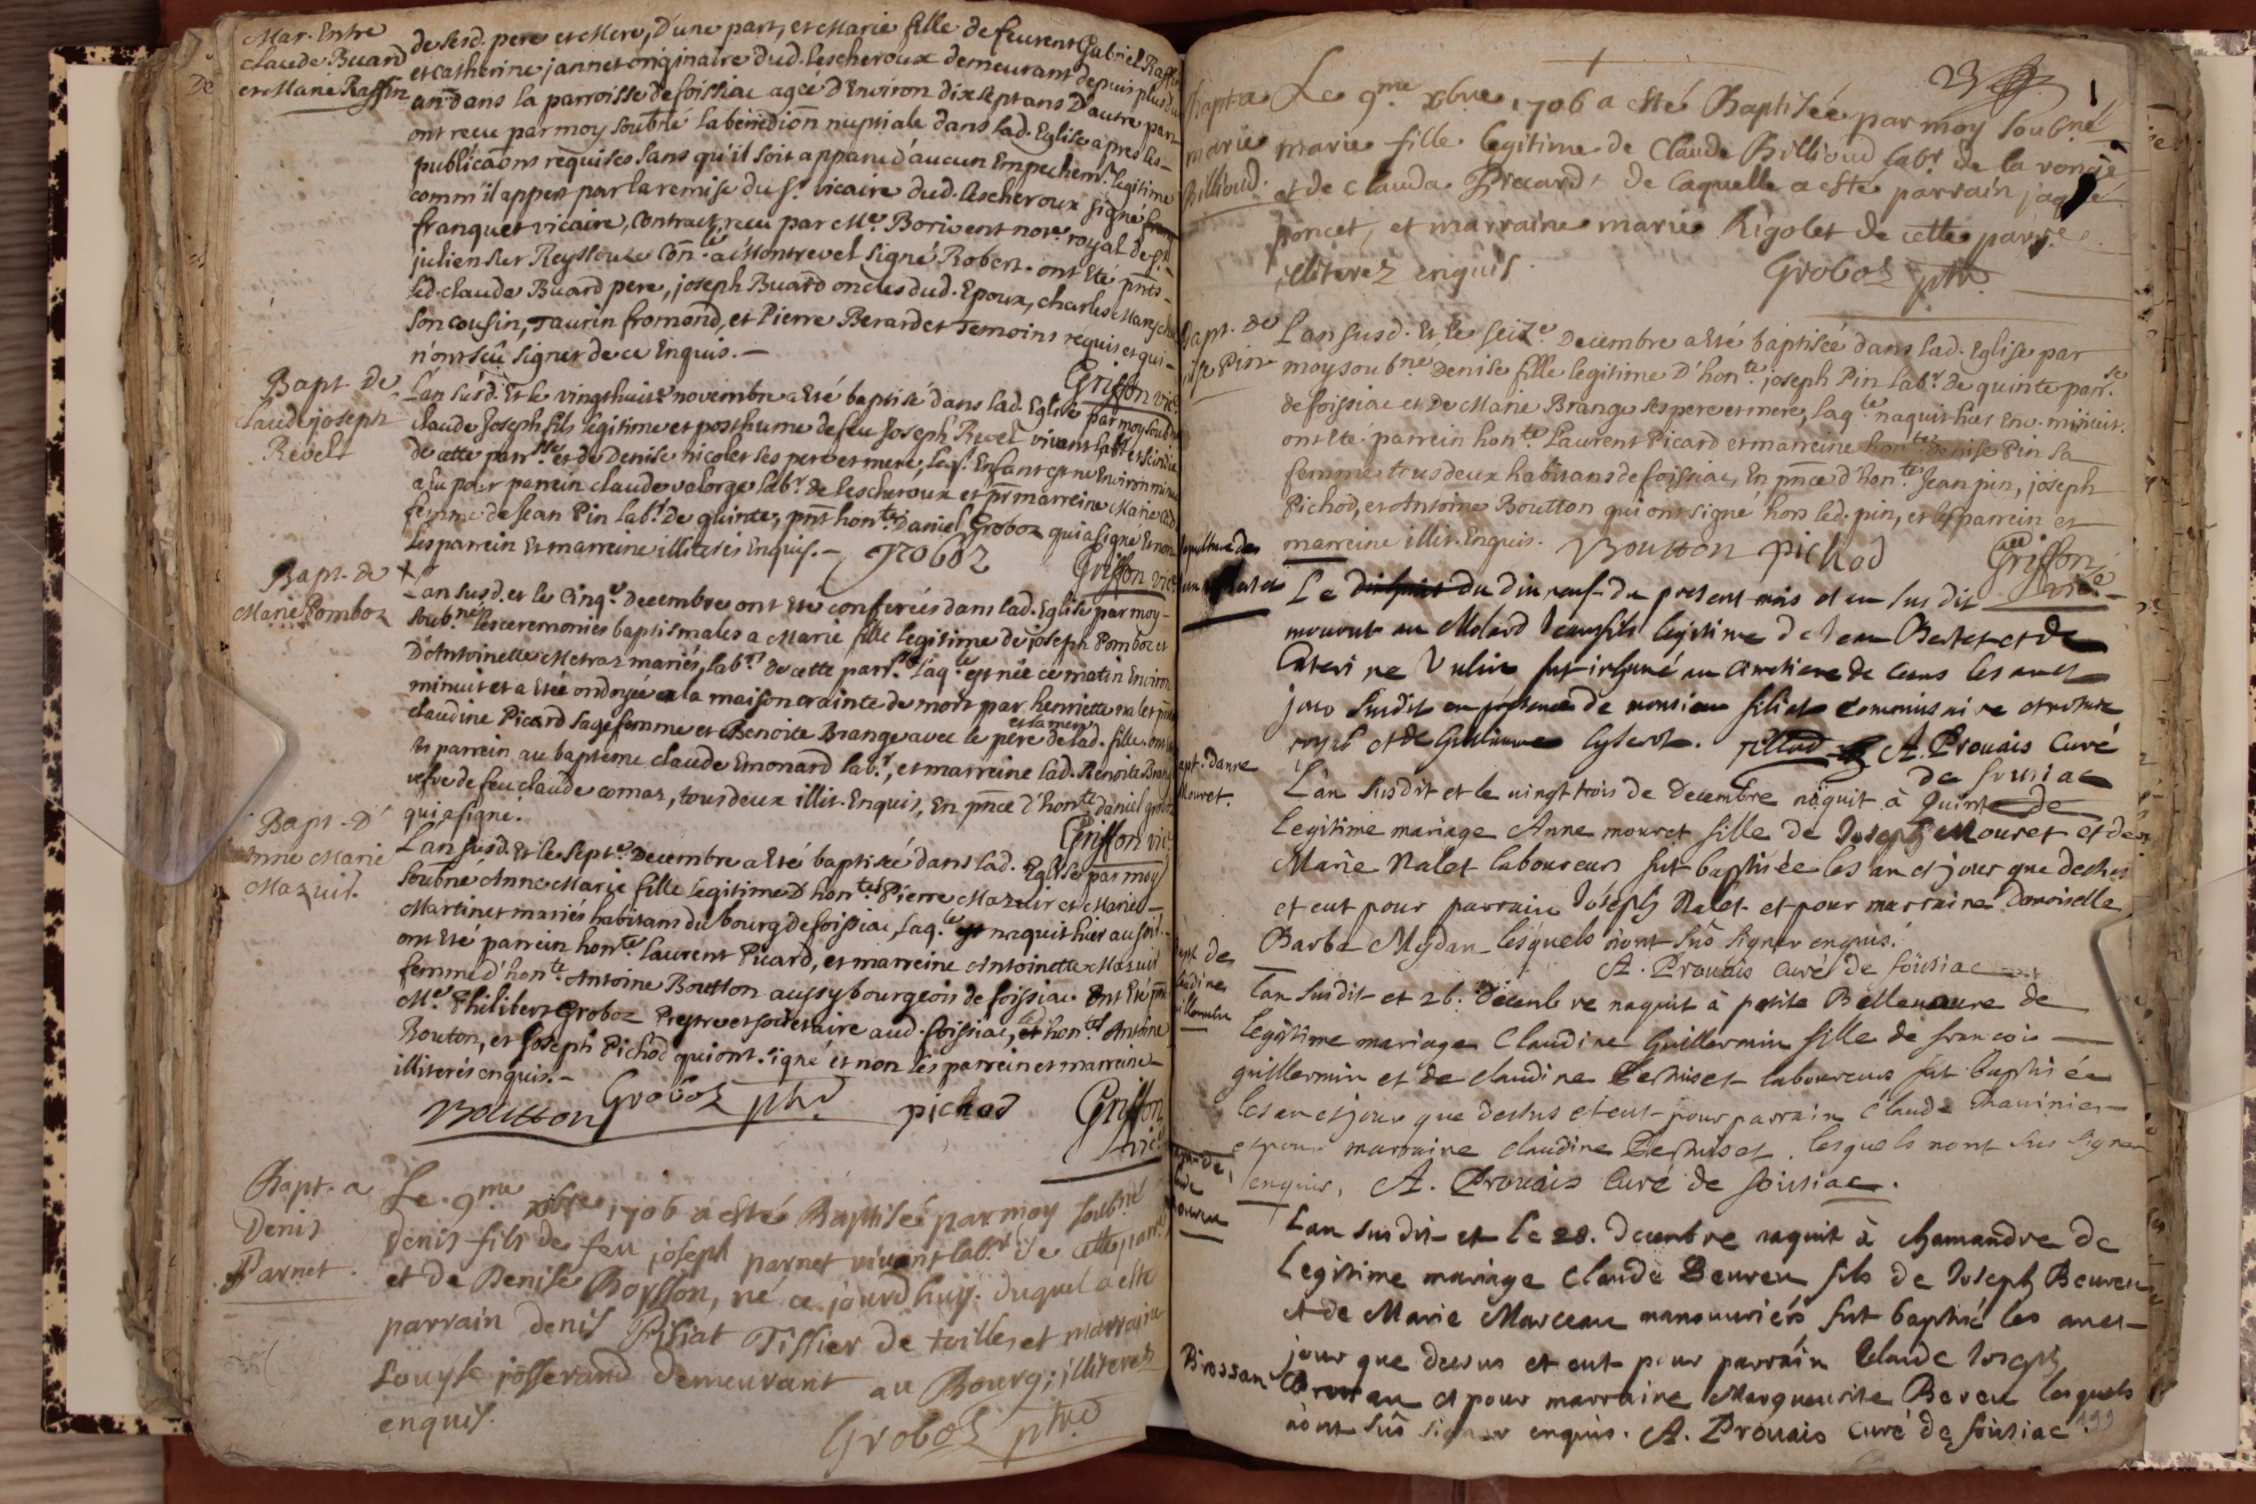 Mar. Entre
Claude Buard
et Marie Raffin
de sesd. pere et Mere, D'une part, et Marie fille de feurent Gabriel Raffin
et Catherine jannet originaire dud. Lescheroux demeurant depuis plus d'un
an dans la parroisse de foissiac agée d'Environ dix sept ans D'autre part
ont receu par moy soubné la benedion nuptiale dans lad. Eglise apres les
publicaons requises sans qu'il soit apparu d'aucun Empechemt legitime
comm'il appert par la remise du sr. vicaire dud. Lescheroux signé
franquet vicaire, Contract receu par Me. Borivent nore. royal de st.
julien sur Reyssouze Con.lé a Montrevel signé Robert. ont Eté pnts
led. claude Buard pere, joseph Buard oncles dud. Epoux, charles
son cousin, Taurin fromond, et Pierre Berardet Temoins requis et qui
n'ont sçû signer de ce Enquis.
Griffon vic.
Bapt. de
Claude joseph
Revel
L'an susd. Et le vingthuite novembre a Eté baptisé dans lad. Eglise par moy soubné
Claude Joseph fils legitime et posthume de feu Joseph Revel vivant labr et
de cette parrsse et de Denise nicolet ses pere et mere, Led. Enfant est né Environ minuit
a eu pour parrein claude valorge labr. de lescheroux et pr marreine Marie
femme de Jean Pin labr. de quinte, pnt honte Daniel Groboz qui a signé Et non
les parrein Et marreine illiterés Enquis. Groboz
Griffon vic.
Bapt. de
Marie Pomboz
L'an susd. et le Cinqe decembre ont Eté conferées dans lad. Eglise par moy
soubné les ceremonies baptismales a Marie fille legitime de joseph Pomboz et
D'Antoinette Metraz mariés, labrs de cette parsse laqle est née ce matin Environ
minuit et a Eté ondoyée a la maison crainte de mort par henriette nalet
claudine Picard sagefemme et Benoite Brange avec le pere et la mere de lad. fille. ont
Eté parrein au bapteme claude Emonard labr, et marreine lad. Benoite Brange
vefve de feu claude comas, tous deux illit. Enquis, En pnce d'honte daniel groboz
qui a signé.
Griffon vic.
Bapt. D'
Anne Marie
Mazuir.
L'an susd. Et le septe Decembre a Eté baptisée dans lad. Eglise par moy
soubné Anne Marie fille legitime d'hontes Pierre Mazuir et Marie
Martinet mariés habitans du bourg de foissiac, laqle naquit hier au soir.
ont Eté parrein honte. Laurent Picard, et marreine Antoinette Mazuir
femme d'honte. Antoine Boutton aussy bourgeois de foissiac. Ont Eté pnt
Me Philibert Groboz Prestre et societaire aud. foissiac, led. honte Antoine
Bouton, et Joseph Pichod qui ont signé et non les parrein et marreine
illiterés enquis.
Boutton Groboz ptre pichod Griffon
vic.
Bapt. a
Denis
Parnet.
Le 9me xbre 1706 a esté Baptisé par moy soubné
denis fils de feu joseph parnet vivant labr. de cette parr.
et de Denise Boysson, né ce jourdhuy. duquel a esté
parrain denis Pisiat Tissier de toilles et marraine
Louyse josserand demeurant au Bourg; illiterez
enquis.
Groboz ptre
23
Bapt. a
marie
Billioud.
Le 9me xbre 1706 a esté Baptisée par moy soubné
marie fille legitime de Claude Billioud labr. de la ronge
et de clauda Brecard de laquelle a esté parrain
poncet, et marraine marie Rigolet de cette parr.
illiterez enquis.
Groboz ptre
Bapt. de
Pin
L'an susd. Et le seize decembre a Eté baptisée dans lad. Eglise par
moy soubné Denise fille legitime D'honte. joseph Pin labr. de quinte parsse.
de foissiac et de Marie Brange ses pere et mere, laqle. naquit hier Env. minuit.
ont Eté parrein honte. Laurent Picard et marreine honte denise Pin sa
femme tous deux habitans de foissiac, En pnce d'honte. Jean pin, joseph
Pichod, et Antoine Boutton qui ont signé hors led. pin, et les parrein et
marreine illit. Enquis. Boutton pichod
Griffon
vic.
Le du dix neuf du present mois et an sus dit
mourut au Molard Jean fils legitime de Jean Bertet et de
Caterine Vulin fut inhumé au cimetiere de ceans les an et
jour susdit en présence de monsieur filiod commissaire et notaire
royal et de Guillaume lybert. filliod A. Prouais Curé
de foissiac
Bapt. danne
Mouret.
L'an susdit et le vingt trois de decembre naquit à Quinte de
legitime mariage Anne mouret fille de Joseph Mouret et de
Marie Nalet laboureurs fut baptisée les an et jour que dessus
et eut pour parrain Joseph Nalet et pour marraine Damoiselle
Barbe Mydan lesquels n'ont sûs signer enquis.
A. Prouais Curé de foissiac
Bapt. de
Claudine
L'an susdit et 26. décembre naquit à petite Bellevavre de
legitime mariage Claudine Guillermin fille de francois
guillermin et de claudine Perruset laboureurs fut baptisée
les an et jour que dessus et eut pour parrain Claude
et pour marraine claudine Perruset. lesquels nont sus signer
enquis. A. Prouais Curé de foissiac.
L'an susdit et le 28. decembre naquit à chamandre de
legitime mariage Claude Beureu fils de Joseph Beureu
et de Marie Marceau manouvriers fut baptisé les an et
jour que dessus et eut pour parrain Claude Joseph
Brossan et pour marraine Marguerite Beveu lesquels
n'ont sûs signer enquis. A. Prouais Curé de foissiac
Brossan
199